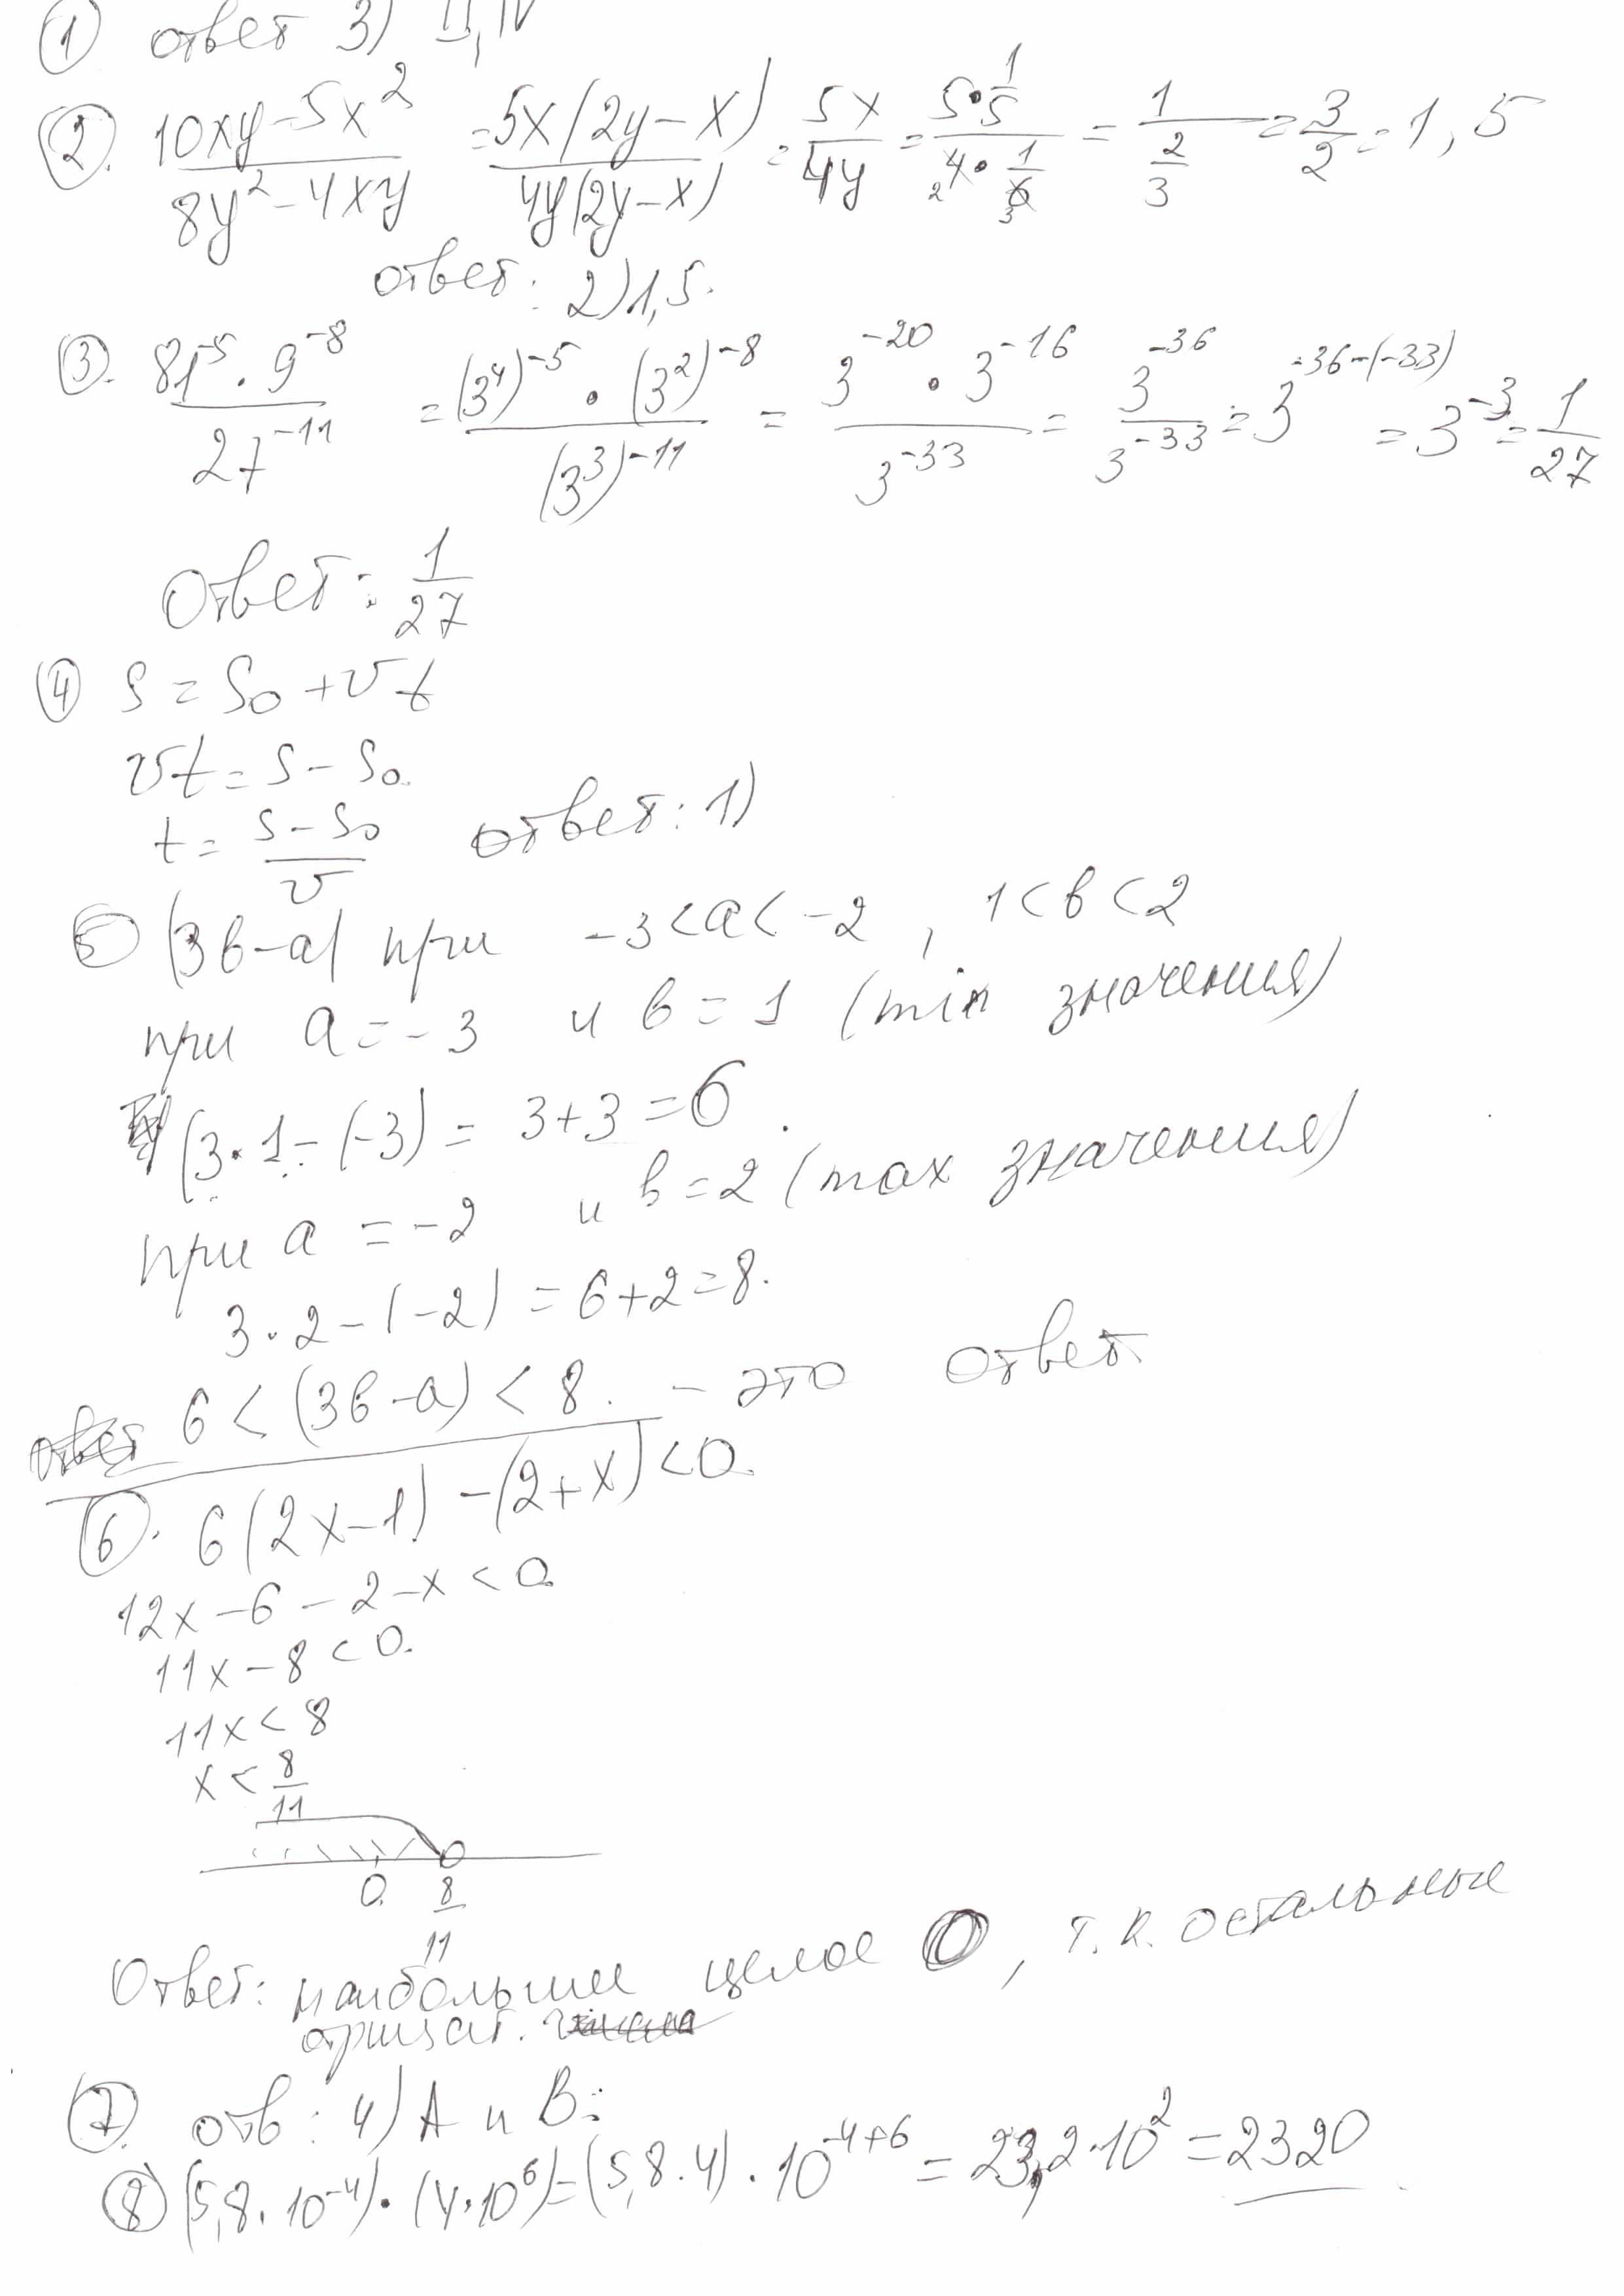 ① ответ 3) II, IV
②. (10xy - 5x²)/(8y² - 4xy) = 5x(2y - x)/4y(2y - x) = 5x/4y = (5 · 1/5)/(4 · 1/6) = 1/(2/3) = 3/2 = 1,5
ответ: 2) 1,5.
③. (81⁻⁵ · 9⁻⁸)/27⁻¹¹ = ((3⁴)⁻⁵ · (3²)⁻⁸)/(3³)⁻¹¹ = (3⁻²⁰ · 3⁻¹⁶)/3⁻³³ = 3⁻³⁶/3⁻³³ = 3⁻³⁶⁻⁽⁻³³⁾ = 3⁻³ = 1/27
Ответ: 1/27
④ S = S₀ + vt
vt = S - S₀
t = (S - S₀)/v ответ: 1)
⑤ (3b - a) при -3 < a < -2, 1 < b < 2
при a = -3 и b = 1 (min значения)
(3 · 1 - (-3) = 3 + 3 = 6.
при a = -2 и b = 2 (max значения)
3 · 2 - (-2) = 6 + 2 = 8.
ответ 6 < (3b - a) < 8. - это ответ
⑥. 6(2x - 1) - (2 + x) < 0.
12x - 6 - 2 - x < 0
11x - 8 < 0.
11x < 8
x < 8/11
0. 8/11
Ответ: наибольшее целое 0, т.к. остальные
отрицат.
⑦. отв: 4) А и В.
⑧ (5,8 · 10⁻⁴) · (4 · 10⁶) = (5,8 · 4) · 10⁻⁴⁺⁶ = 23,2 · 10² = 2320